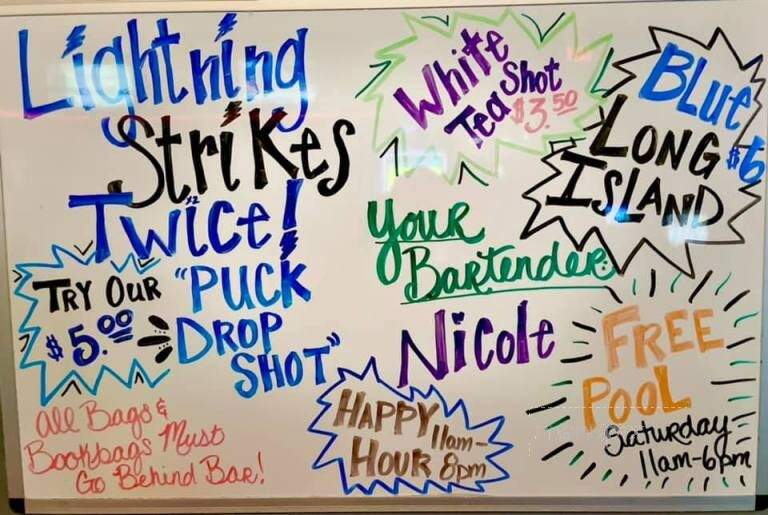 Lightning
Strikes
Twice!
x2
TRY OUR "PUCK
$5.00 DROP
SHOT"
All Bags &
Bookbags Must
Go Behind Bar!
White
Tea Shot
$3.50
BLUE
LONG $6
ISLAND
Your
Bartender
Nicole
HAPPY 11am-
HOUR 8pm
FREE
POOL
Saturday-
11am-6pm